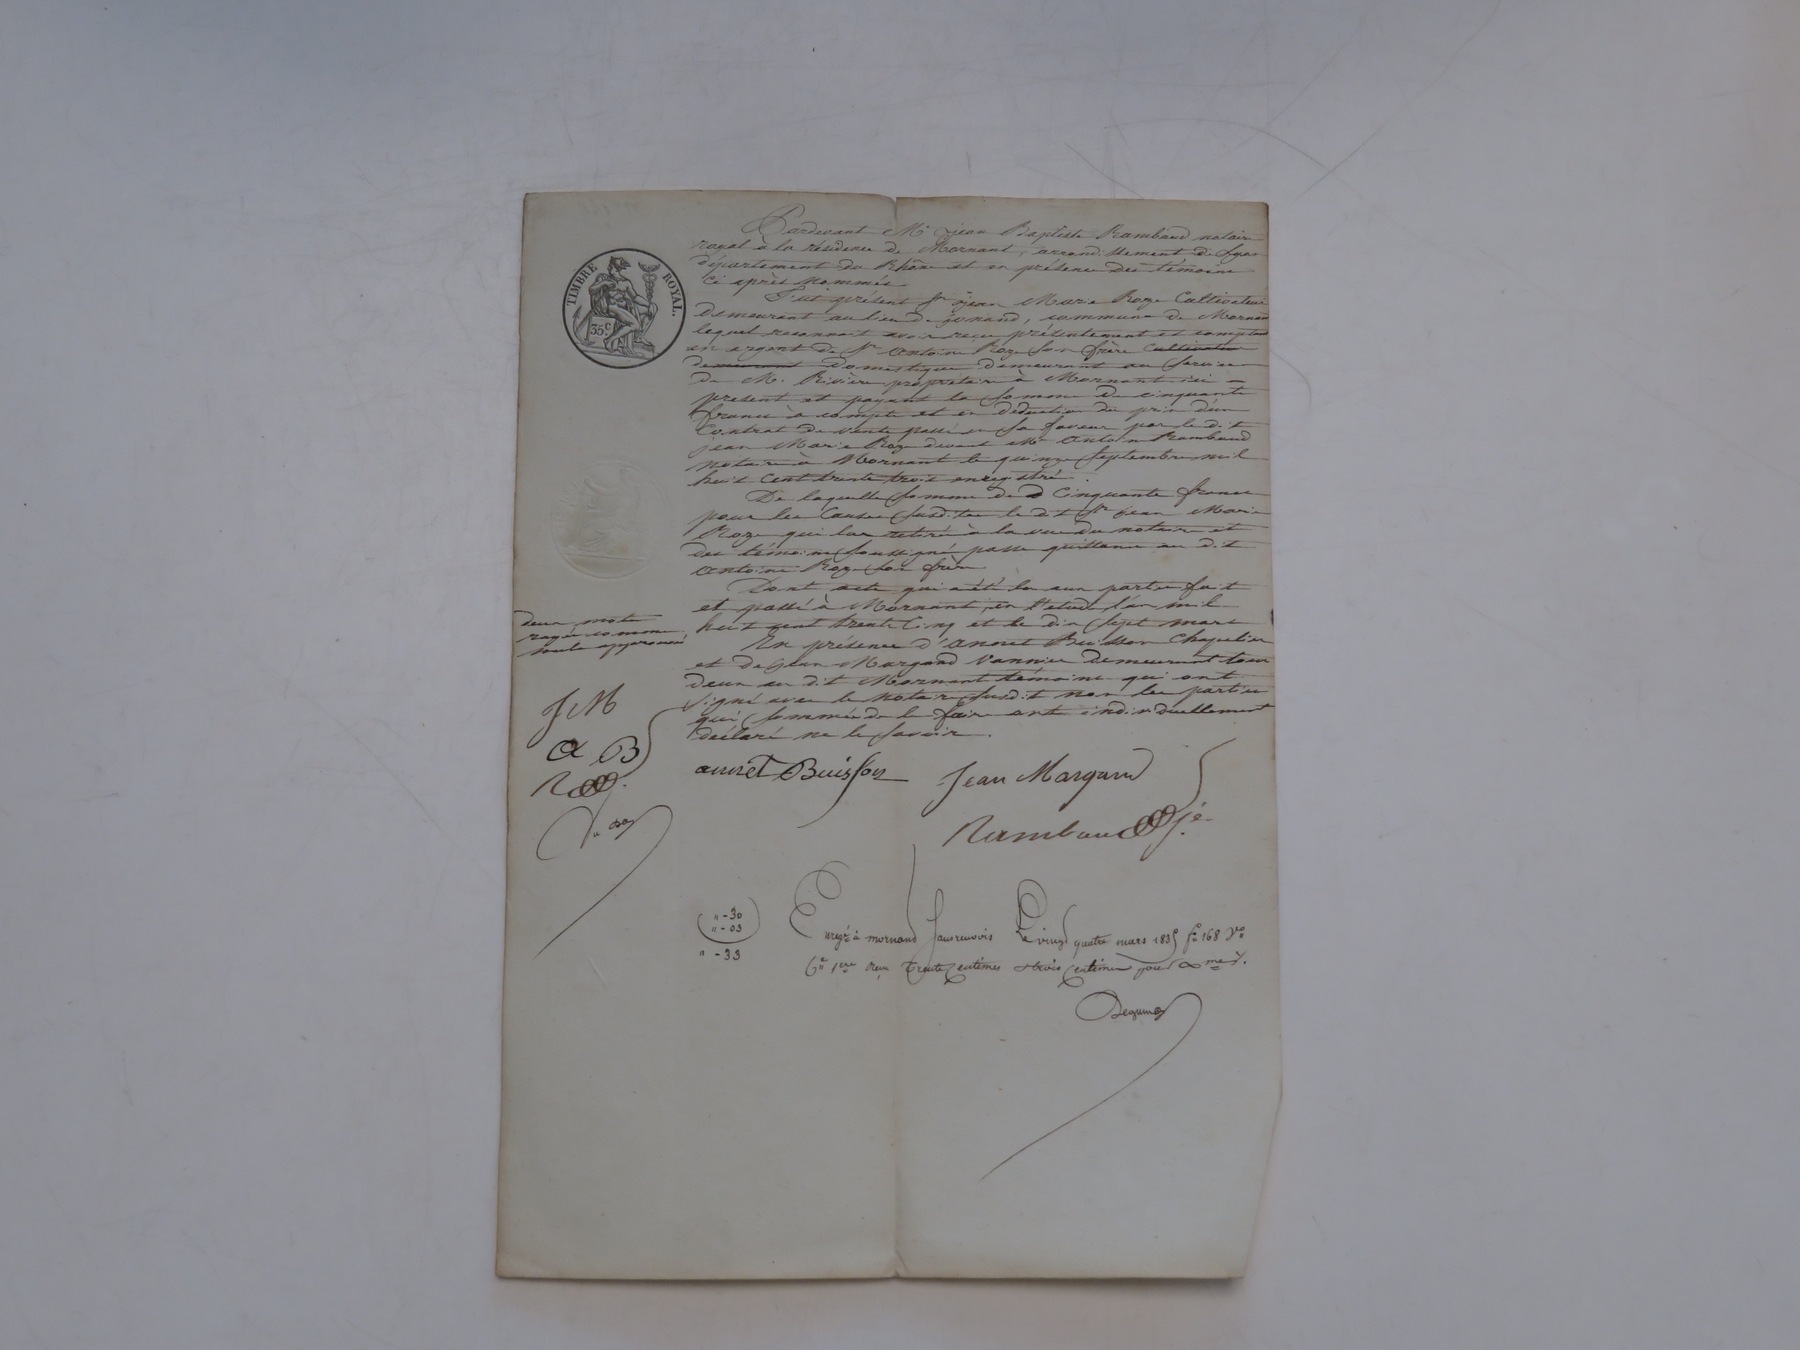 Pardevant Me jean Baptiste Rambaud notaire
royal à la résidence de Mornant, arrondissement de Lyon
département du Rhône et en présence des témoins
ci après nommés
Fut présent Sr jean Marie Roze Cultivateur
demeurant au lieu de jonand, commune de Mornant
lequel reconnait avoir reçu présentement et comptant
en argent de Sr Antoine Roze son frère cultivateur
demeurant domestique demeurant au service
de M. Rivière propriétaire à Mornant ici
présent et payant la somme de cinquante
francs à compte et en déduction du prix d'un
Contrat de vente passé en sa faveur par le dit
jean Marie Roze devant Me Antoine Rambaud
notaire à Mornant le quinze Septembre mil
huit cent trente trois enregistré.
De laquelle somme de Cinquante francs
pour les Causes susdites le dit Sr jean Marie
Roze qui l'a retiré à la vue du notaire et
des témoins soussigné passe quittance au dit
Antoine Roze son frère
Dont acte qui a été lu aux parties fait
et passé à Mornant en l'etude l'an mil
huit cent trente Cinq et le dix sept mars
En présence d'annet Buisson Chapelier
et de jean Margand vannier demeurant tous
deux au dit Mornant témoins qui ont
signé avec le notaire susdit non les parties
qui sommées de le faire ont individuellement
déclaré ne le savoir.
TIMBRE ROYAL.
35c
deux mots
rayés comme
nuls approuvés
J M
a B
annet Buisson
Jean Margand
Rambaud je
" -30
" -03
" -33
Enregé à mornand Le vingt quatre mars 1835 fo 168 Vo
Ce 1ere reçu trente Centimes et trois Centimes pour Dme